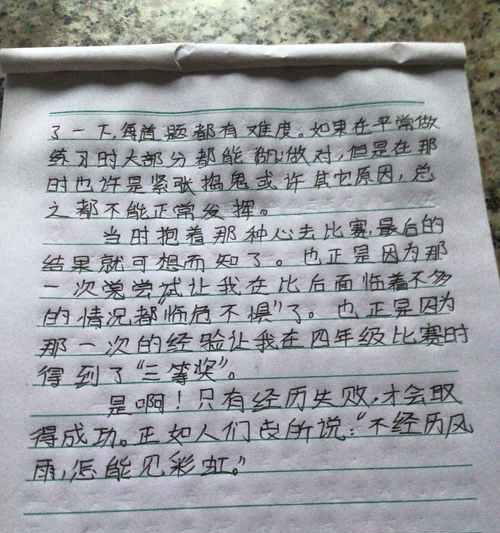 了一下,每道题都有难度。如果在平常做
练习时大部分都能做对,但是在那
时也许是紧张捣鬼或许其它原因,总
之都不能正常发挥。
当时抱着那种心去比赛,最后的
结果就可想而知了。也正是因为那
一次尝试让我在比后面临着不多
的情况都“临危不惧”了。也正是因为
那一次的经验让我在四年级比赛时
得到了“三等奖”。
是啊!只有经历失败,才会取
得成功。正如人们所说:“不经历风
雨,怎能见彩虹。”